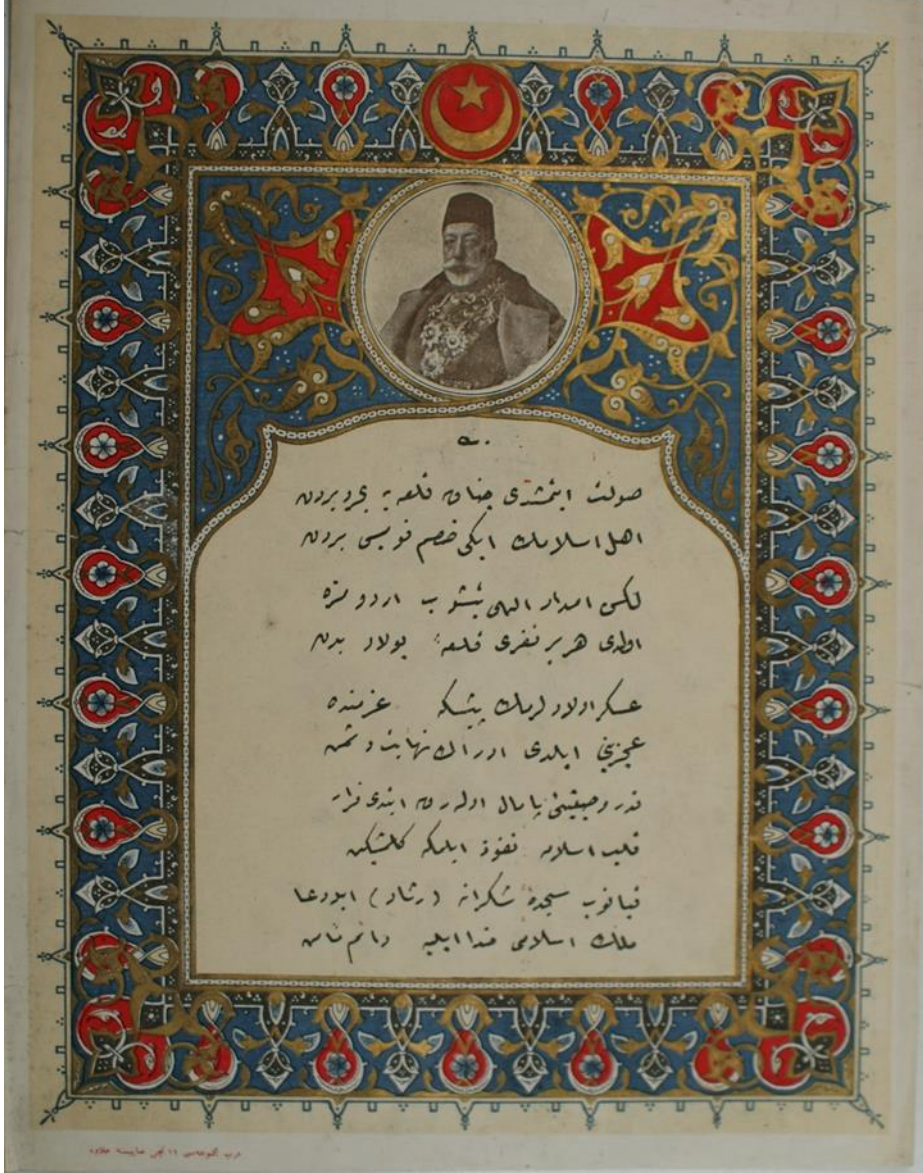 صولت ایتمشدی چناق قلعه یه بحر و بردن
اهل اسلامك ایکی خصم قویسی بردن
لکن امداد الهی یتیشوب اردومزه
اولدی هر بر نفری قلعهٔ پولاد بدن
عسکر اولادلرمك پیشکه عزمنده
عجزینی ایلدی ادراك نهایت دشمن
قدر و حیثیتی پامال اوله‌رق ایتدی فرار
قلب اسلامه نفوذ ایلمکه کلمشکن
قپانوب سجدهٔ شکرانه (رشاد) ایله دعا
ملك اسلامی خدا ایلیه دائم مأمن
حرب مجموعه‌سی ١١ نجی صاییسنه علاوه